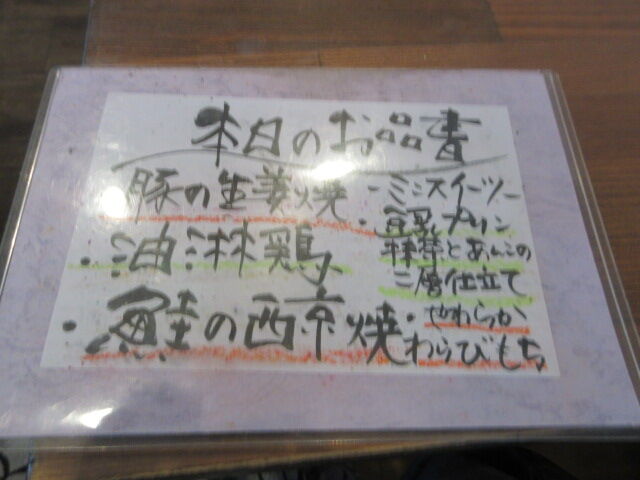 本日のお品書
豚の生姜焼
・油淋鶏
・鮭の西京焼
-ミニスイーツ-
・豆乳プリン
抹茶とあんこの
二層仕立て
・やわらか
わらびもち